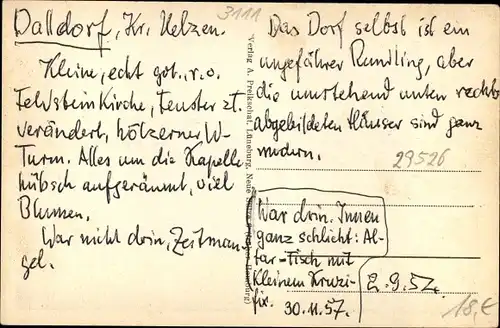 Dalldorf, Kr. Uelzen.
Kleine, echt got., r.o.
Feldsteinkirche, Fenster zt.
verändert, hölzerner W-
Turm. Alles um die Kapelle
hübsch aufgeräumt, viel
Blumen.
War nicht drin, Zeitman-
gel.
3111
Verlag A. Preikschat, Lüneburg, Neue
Das Dorf selbst ist ein
ungefährer Rundling, aber
die umstehend unten rechts
abgebildeten Häuser sind ganz
modern.
29526
War drin. Innen
ganz schlicht: Al-
tar-Tisch mit
kleinem Kruzi-
fix. 30.11.57.
2.9.57.
18,€